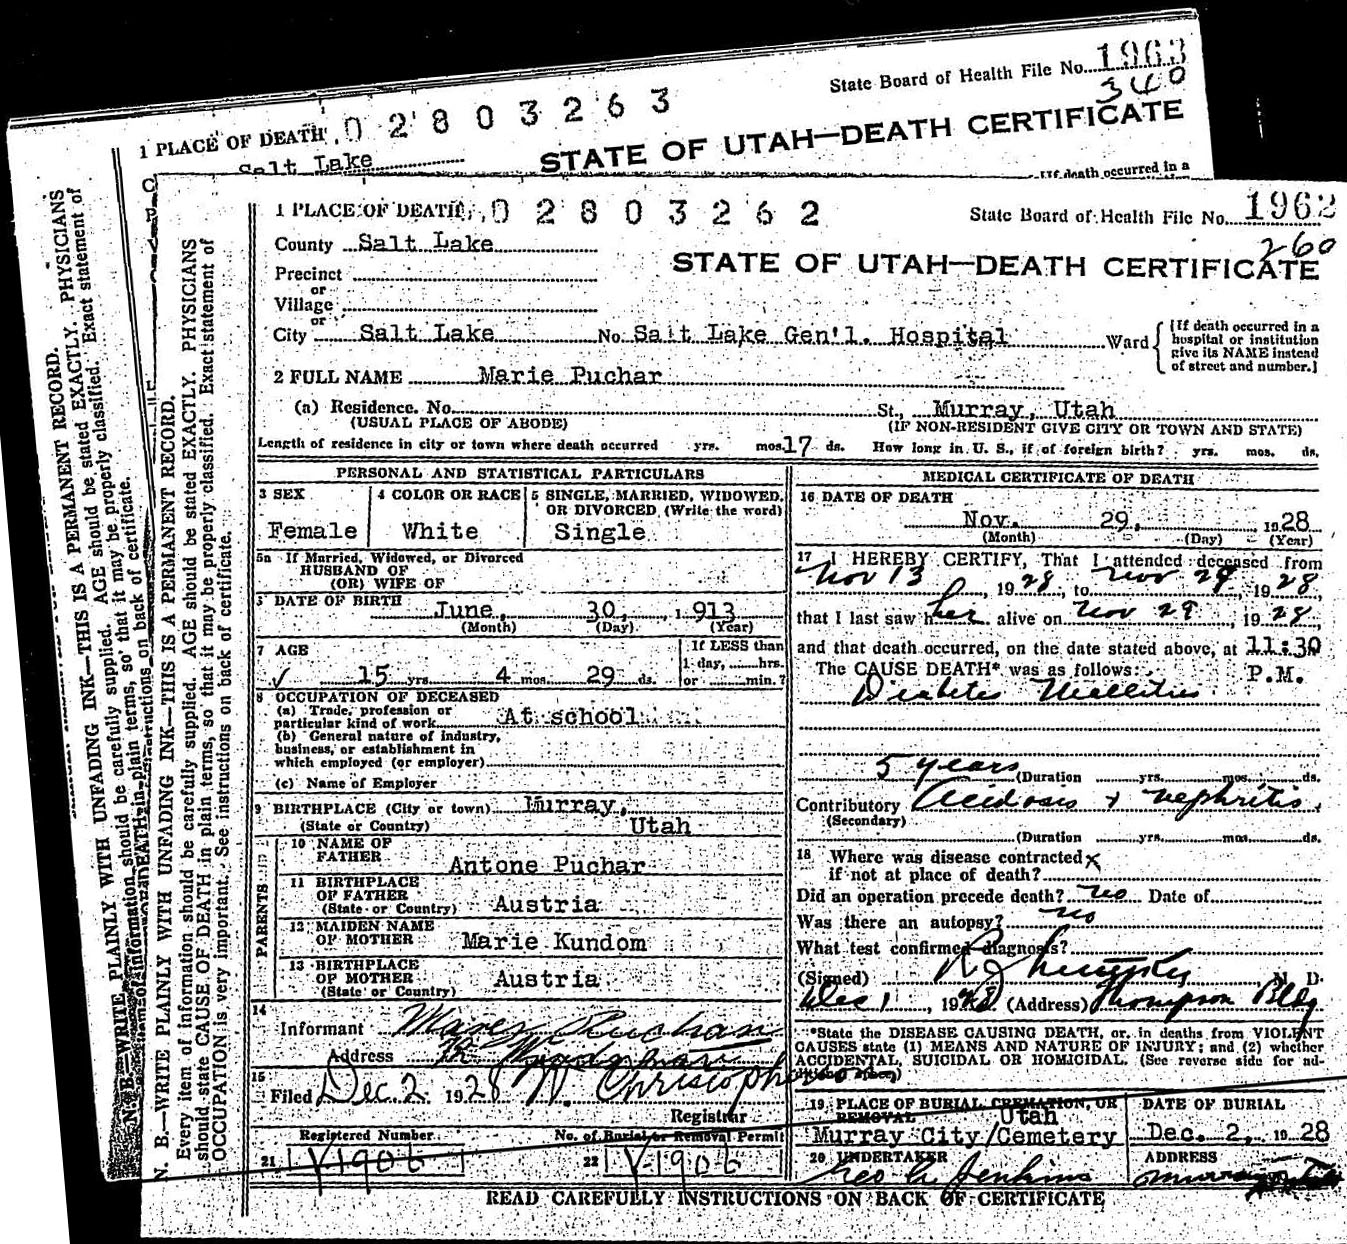 State Board of Health File No. 1963
340
1 PLACE OF DEATH 02803263
STATE OF UTAH—DEATH CERTIFICATE
Salt Lake
[If death occurred in a
1 PLACE OF DEATH 02803262
State Board of Health File No. 1962
260
County Salt Lake
STATE OF UTAH—DEATH CERTIFICATE
Precinct
or
Village
or
City Salt Lake No. Salt Lake Gen'l. Hospital Ward
[If death occurred in a
hospital or institution
give its NAME instead
of street and number.]
2 FULL NAME Marie Puchar
(a) Residence. No. St., Murray, Utah
(USUAL PLACE OF ABODE) (IF NON-RESIDENT GIVE CITY OR TOWN AND STATE)
Length of residence in city or town where death occurred yrs. mos. 17 ds. How long in U. S., if of foreign birth? yrs. mos. ds.
PERSONAL AND STATISTICAL PARTICULARS
3 SEX
Female
4 COLOR OR RACE
White
5 SINGLE, MARRIED, WIDOWED,
OR DIVORCED (Write the word)
Single
5a If Married, Widowed, or Divorced
HUSBAND OF
(OR) WIFE OF
DATE OF BIRTH June, 30, 1913
(Month) (Day) (Year)
7 AGE
15 yrs. 4 mos. 29 ds.
If LESS than
1 day, hrs.
or min.?
8 OCCUPATION OF DECEASED
(a) Trade, profession or
particular kind of work At school
(b) General nature of industry,
business, or establishment in
which employed (or employer)
(c) Name of Employer
9 BIRTHPLACE (City or town) Murray,
(State or Country) Utah
PARENTS
10 NAME OF
FATHER Antone Puchar
11 BIRTHPLACE
OF FATHER
(State or Country) Austria
12 MAIDEN NAME
OF MOTHER Marie Kundom
13 BIRTHPLACE
OF MOTHER
(State or Country) Austria
14
Informant
Address
15
Filed Dec. 2 1928
Registrar
Registered Number
21 V1906
No. of Burial or Removal Permit
22 V-1906
MEDICAL CERTIFICATE OF DEATH
16 DATE OF DEATH
Nov. 29, 1928
(Month) (Day) (Year)
17 I HEREBY CERTIFY, That I attended deceased from
Nov 13, 1928, to Nov 29, 1928,
that I last saw her alive on Nov 29, 1928,
and that death occurred, on the date stated above, at 11:30
P.M.
The CAUSE DEATH* was as follows:
Diabetes Mellitus
5 years (Duration yrs. mos. ds.
Contributory Acidosis + nephritis.
(Secondary)
(Duration yrs. mos. ds.
18 Where was disease contracted
if not at place of death?
Did an operation precede death? no Date of
Was there an autopsy? no
What test confirmed diagnosis?
(Signed) M. D.
Dec 1, 1928 (Address) Thompson Bldg
*State the DISEASE CAUSING DEATH, or, in deaths from VIOLENT
CAUSES state (1) MEANS AND NATURE OF INJURY; and (2) whether
ACCIDENTAL, SUICIDAL OR HOMICIDAL. (See reverse side for ad-
19 PLACE OF BURIAL, CREMATION, OR
REMOVAL Utah
Murray City/Cemetery
DATE OF BURIAL
Dec. 2, 1928
20 UNDERTAKER
Jenkins
ADDRESS
Murray
READ CAREFULLY INSTRUCTIONS ON BACK OF CERTIFICATE
N. B.—WRITE PLAINLY WITH UNFADING INK—THIS IS A PERMANENT RECORD.
Every item of information should be carefully supplied. AGE should be stated EXACTLY. PHYSICIANS
should state CAUSE OF DEATH in plain terms, so that it may be properly classified. Exact statement of
OCCUPATION is very important. See instructions on back of certificate.
N. B.—WRITE PLAINLY WITH UNFADING INK—THIS IS A PERMANENT RECORD.
information should be carefully supplied. AGE should be stated EXACTLY. PHYSICIANS
in plain terms, so that it may be properly classified. Exact statement of
instructions on back of certificate.